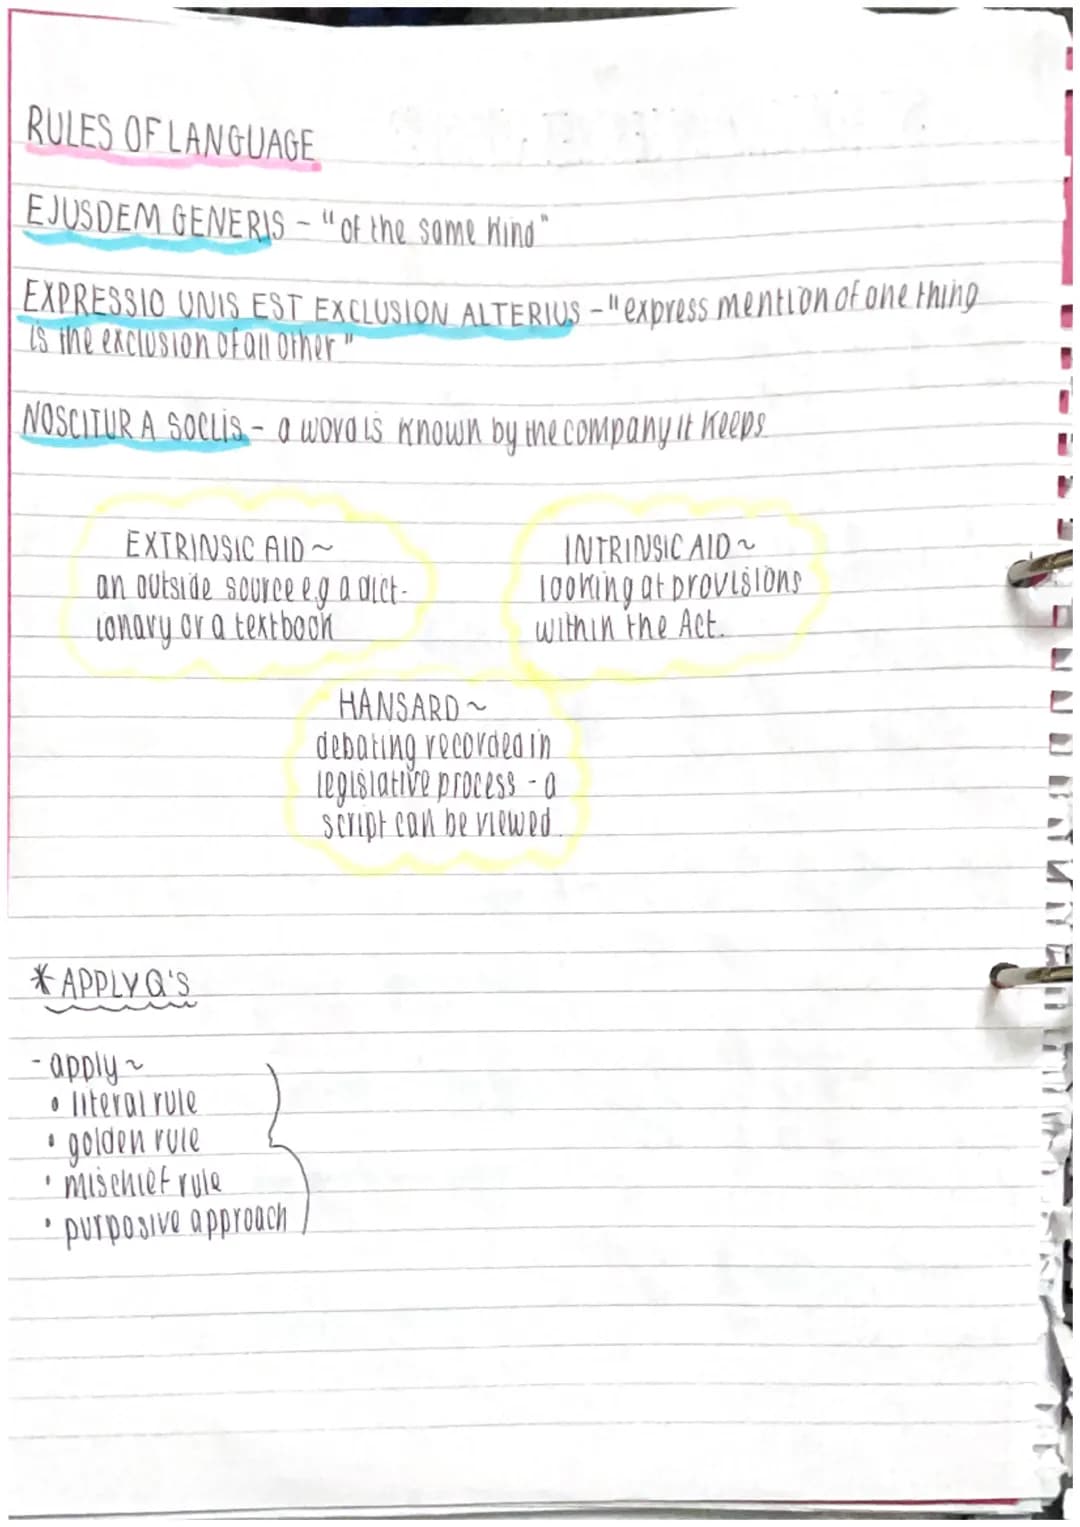 RULES OF LANGUAGE
EJUSDEM GENERIS - "of the same kind"
EXPRESSIO UNIS EST EXCLUSION ALTERIUS - "express mention of one thing
is the exclusion of all other"
NOSCITUR A SOCLIS - a word is known by the company it keeps
EXTRINSIC AID ~
an outside source e.g a dict-
ionary or a textbook
INTRINSIC AID ~
looking at provisions
within the Act.
HANSARD ~
debating recorded in
legislative process - a
script can be viewed.
* APPLY Q'S
- apply ~
• literal rule
• golden rule
• mischief rule
• purposive approach